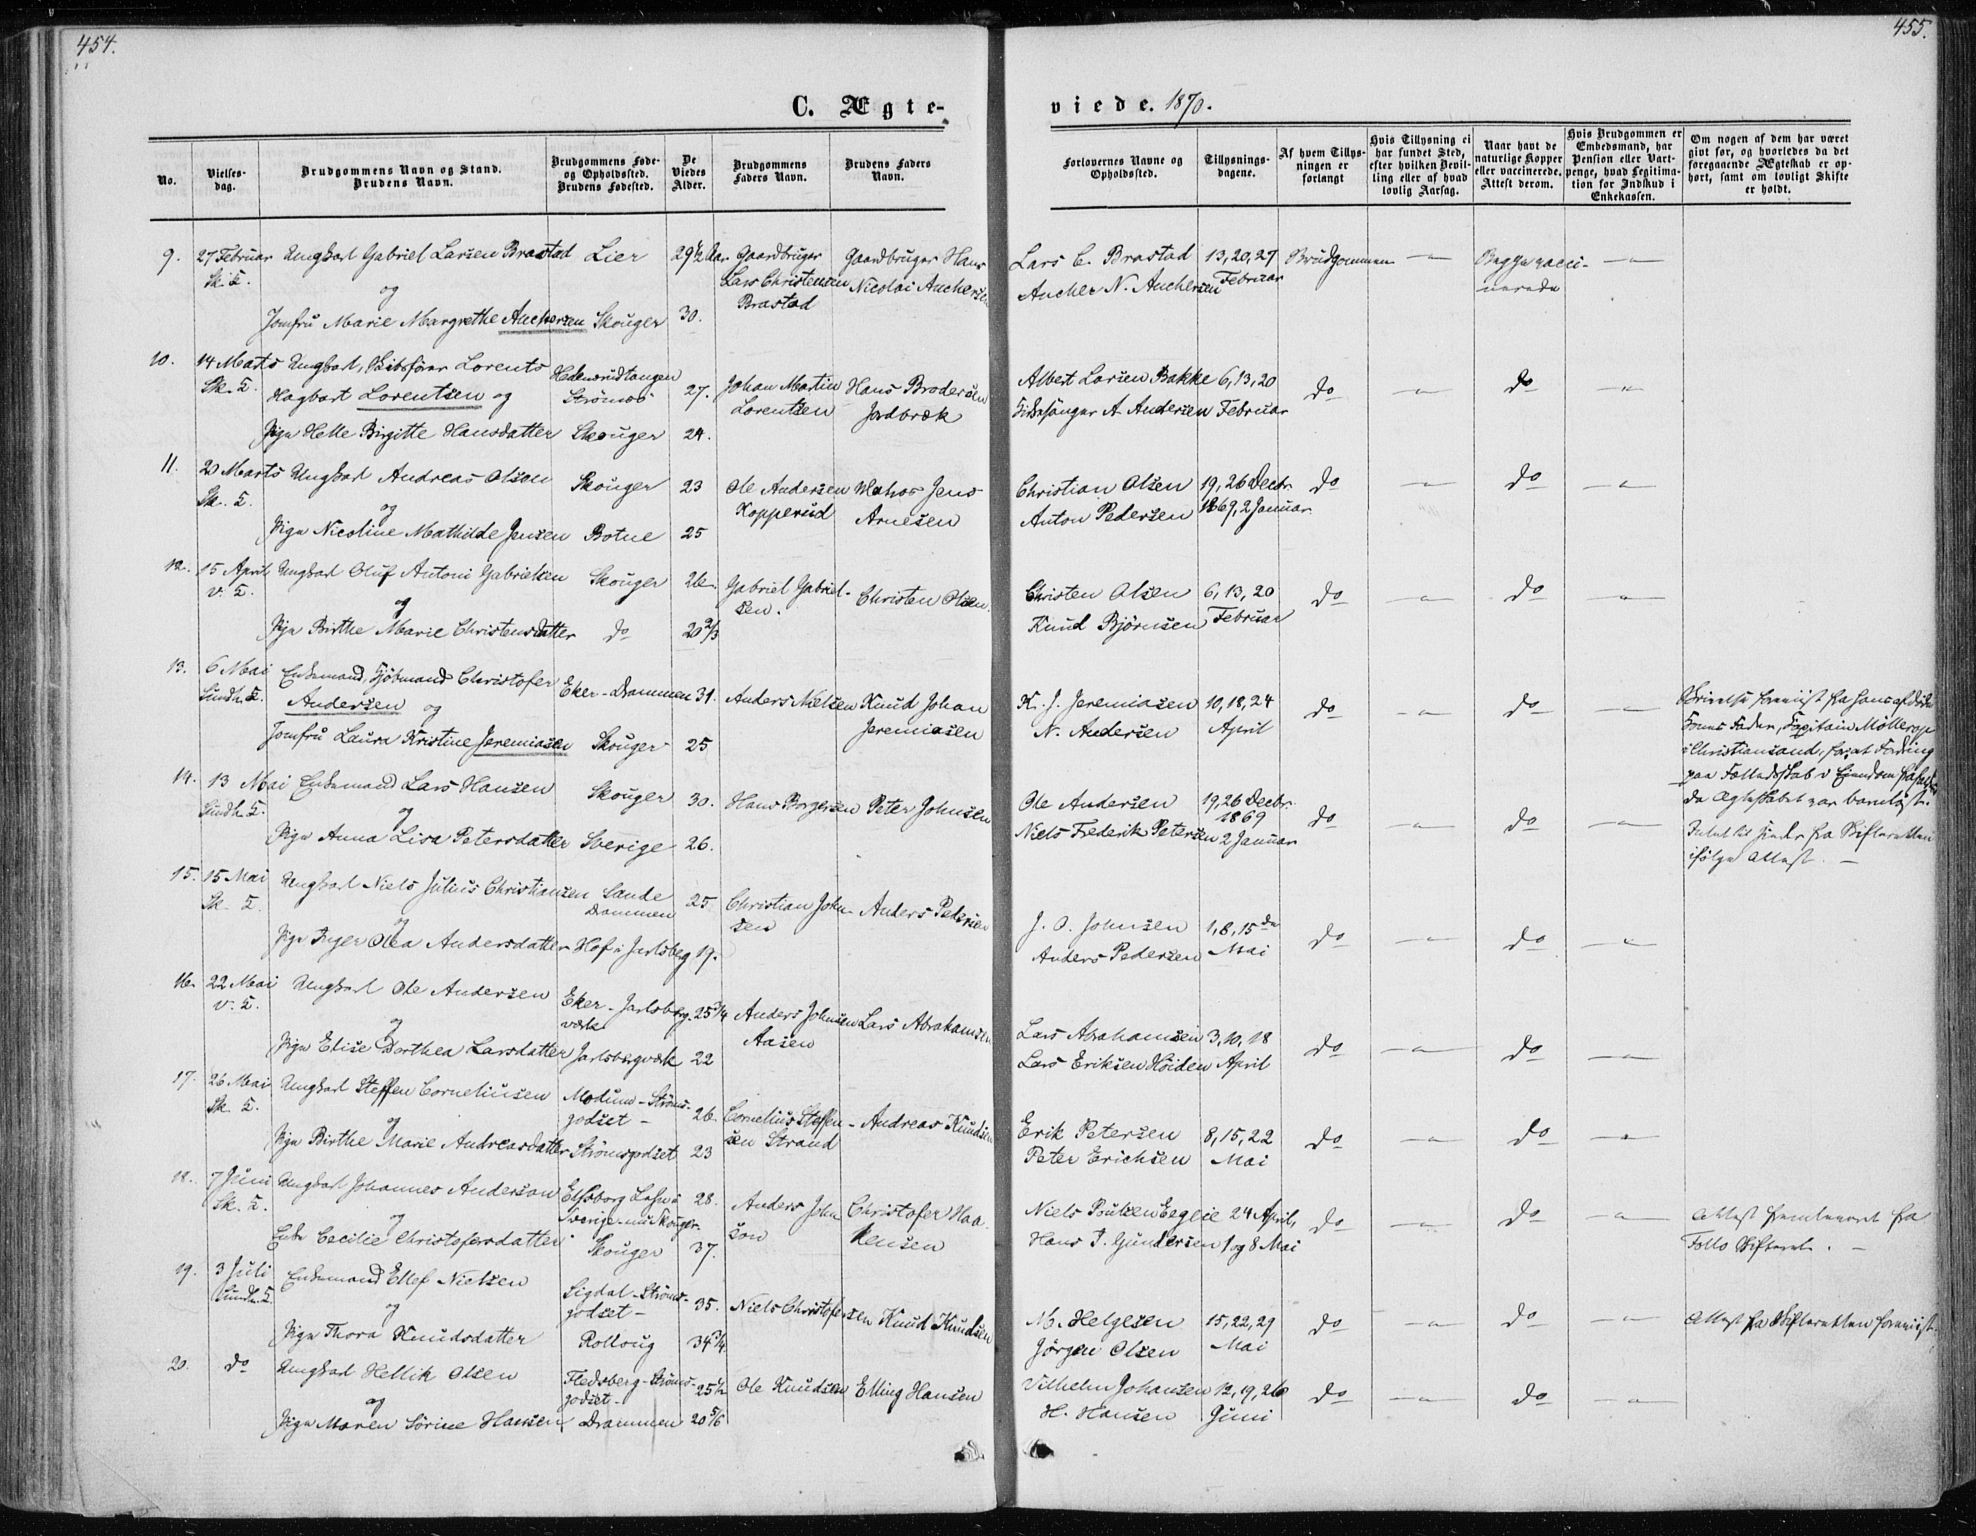 454.
455.
C. Ægte-
viede. 1870.
No.
Vielses-
dag.
Brudgommens Navn og Stand.
Brudens Navn.
Brudgommens Føde-
og Opholdssted.
Brudens Fødested.
De
Viedes
Alder.
Brudgommens
Faders Navn.
Brudens Faders
Navn.
Forlovernes Navne og
Opholdssted.
Tillysnings-
dagene.
Af hvem Tillys-
ningen er
forlangt
Hvis Tillysning ei
har fundet Sted,
efter hvilken Bevil-
ling eller af hvad
lovlig Aarsag.
Naar havt de
naturlige Kopper
eller vaccinerede.
Attest derom.
Hvis Brudgommen er
Embedsmand, har
Pension eller Vart-
penge, hvad Legitima-
tion for Indskud i
Enkekassen.
Om nogen af dem har været
givt før, og hvorledes da det
foregaaende Ægteskab er op-
hørt, samt om lovligt Skifte
er holdt.
9. 27 Februar Ungkarl Gabriel Larsen Brastad Lier 29½ Aar Gaardbruger Gaardbruger Hans
Sk. K. og Lars Christensen Nicolai Anchersen
Jomfru Marie Margrethe Anchersen Skouger 30. Brastad
Lars C. Brastad 13, 20, 27 Brudgommen — Begge vacci- —
Ancher N. Anchersen Februar nerede
10. 14 Marts Ungkarl, Skibsfører Lorents Hedensrudtangen
Sk. K. Hagbart Lorentsen og Strømsö 27. Johan Martin Hans Brodersen
Pige Helle Birgitte Hansdatter Skouger 24. Lorentsen Jordbræk
Albert Larsen Bakke 6, 13, 20 do — do —
Kirkesanger A. Andersen Februar
11. 20 Marts Ungkarl Andreas Olsen Skouger 23 Ole Andersen Jens
Sk. K. og Kopperud Arnesen
Pige Nicoline Mathilde Jensen Botne 25
Christian Olsen 19, 26 Decbr. do — do —
Anton Pedersen 1869, 2 Januar
12. 15 April Ungkarl Oluf Antoni Gabrielsen Skouger 26 Gabriel Gabriel- Christen Olsen
v. K. og sen.
Pige Birthe Marie Christensdatter do 20 2/3
Christen Olsen 6, 13, 20 do — do —
Knud Björnsen Februar
13. 6 Mai Enkemand, Sjömand Christofer Eker - Drammen 31. Anders Nielsen Knud Johan
Sundh. K. Andersen og Jeremiasen
Jomfru Laura Kristine Jeremiasen Skouger 25
K. J. Jeremiasen 10, 18, 24 do — do —
N. Andersen April
Kones Fader, Kapitain Møllerop
i Christiansand, for at Fordring
paa Fælledsskab i Eiendom
da Ægteskabet var barnløst.
14. 13 Mai Enkemand Lars Hansen Skouger 30. Hans Borgersen Peter Johnsen
Sundh. K. og
Pige Anna Lisa Petersdatter Sverige 26.
Ole Andersen 19, 26 Decbr. 1869 do — do —
Niels Frederik Petersen 2 Januar
fra Skifteretten
ifølge Attest. —
15. 15 Mai Ungkarl Niels Julius Christiansen Sande 25 Christian John- Anders Pedersen
Sk. K. og Drammen sen
Pige Inger Olea Andersdatter Hof i Jarlsberg 19.
J. O. Johnsen 1, 8, 15de do — do —
Anders Pedersen Mai
16. 22 Mai Ungkarl Ole Andersen Eker - Jarlsberg- 25¾ Anders Johnsen Lars Abrahamsen
v. K. og værk Aasen
Pige Elise Dorthea Larsdatter Jarlsbergværk 22
Lars Abrahamsen 3, 10, 18 do — do —
Lars Eriksen Höiden April
17. 26 Mai Ungkarl Steffen Corneliusen Modum - Ströms- 26. Cornelius Steffen- Andreas Knudsen
Sk. K. og godset — sen Strand
Pige Birthe Marie Andreasdatter Strömsgodset 23
Erik Petersen 8, 15, 22 do — do —
Peter Erichsen Mai
18. 7 Juni Ungkarl Johannes Anderson Elfsborg Lehn i 28. Anders John- Christofer Haa-
Sk. K. og Sverige - nu Skouger son kensen
Enke Cecilie Christofersdatter Skouger 37.
Niels Poulsen Eeglie 24 April, do — do — Attest fremleveret fra
Hans T. Gundersen 1 og 8 Mai Follo Skifteret. —
19. 3 Juli Enkemand Ellef Nielsen Sigdal - Ströms- 35. Niels Christofersen Knud Knudsen
Sundh. K. og godset —
Pige Thora Knudsdatter Rolloug 34¾
M. Helgesen 15, 22, 29 do — do — Attest fra Skifteretten forevist.
Jörgen Olsen Mai
20. do Ungkarl Hellik Olsen Flesberg - Ströms- 25½ Ole Knudsen Elling Hansen
og godset —
Pige Maren Sörine Hansen Drammen 20 5/6
Vilhelm Johansen 12, 19, 26 do — do —
H. Hansen Juni